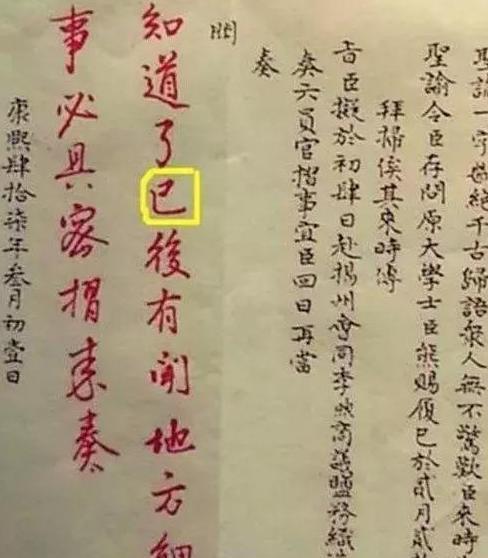 聖諭一字絕千古歸語衆人無不驚歎臣來時
聖諭令臣存問原大學士臣熊賜履已於貳月貳
拜掃俟其來時傳
旨臣擬於初肆日赴揚州會同李煦商議鹽務織
奏六員官摺事宜臣回日再當
奏
聞
知道了已後有聞地方細
事必具密摺來奏
康熙肆拾柒年叁月初壹日